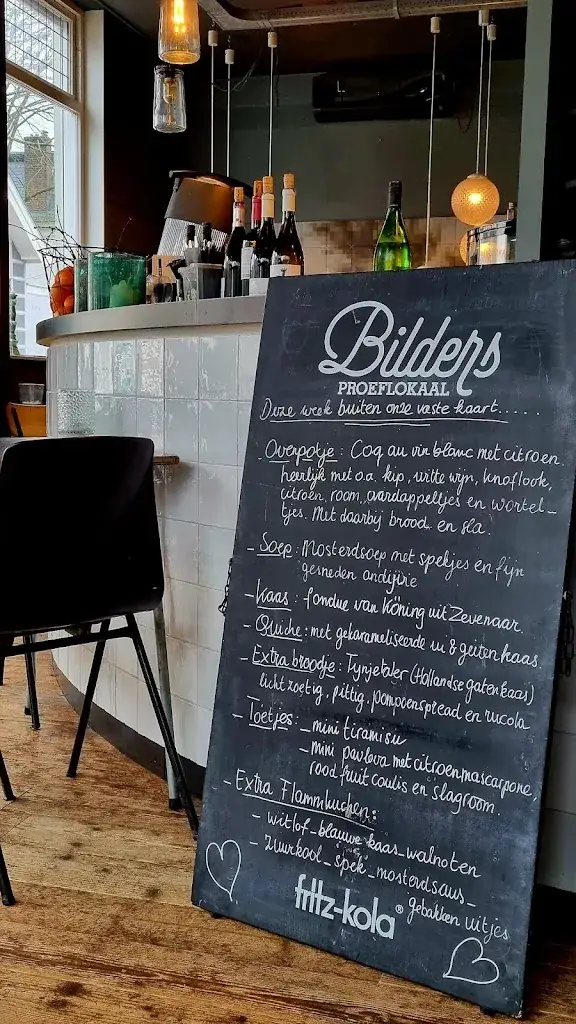 Bilders
PROEFLOKAAL
Deze week buiten onze vaste kaart.....
Ovenpotje: Coq au vin blanc met citroen.
heerlijk met o.a. kip, witte wijn, knoflook,
citroen, room, aardappeltjes en wortel-
tjes. Met daarbij brood en sla.
- Soep: Mosterdsoep met spekjes en fijn
gesneden andijvie
- Kaas: fondue van Köning uit Zevenaar.
- Quiche: met gekarameliseerde ui & geitenkaas.
- Extra broodje: Tynjetaler (Hollandse gatenkaas)
licht zoetig, pittig, pompoenspread en rucola
- Toetjes: - mini tiramisu
- mini pavlova met citroenmascarpone,
rood fruit coulis en slagroom.
- Extra Flammkuchen:
- witlof_blauwe kaas_walnoten
- zuurkool_spek_mosterdsaus_
gebakken uitjes
fritz-kola®